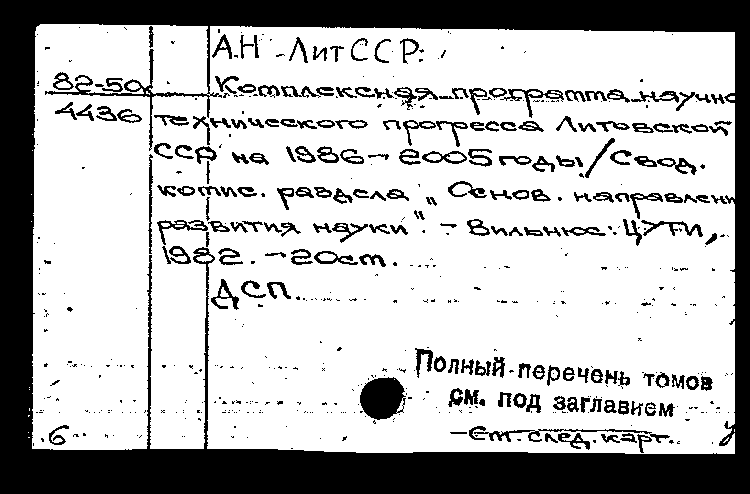 АН ЛитССР:
82-50
Комплексная программа научно
4436 технического прогресса Литовской
ССР на 1986-2005 годы / Свод.
комис. раздела „Основ. направлени
развития науки". - Вильнюс: ЦУТИ,
1982. - 20 ст.
ДСП.
Полный перечень томов
см. под заглавием
См. след. карт.
6